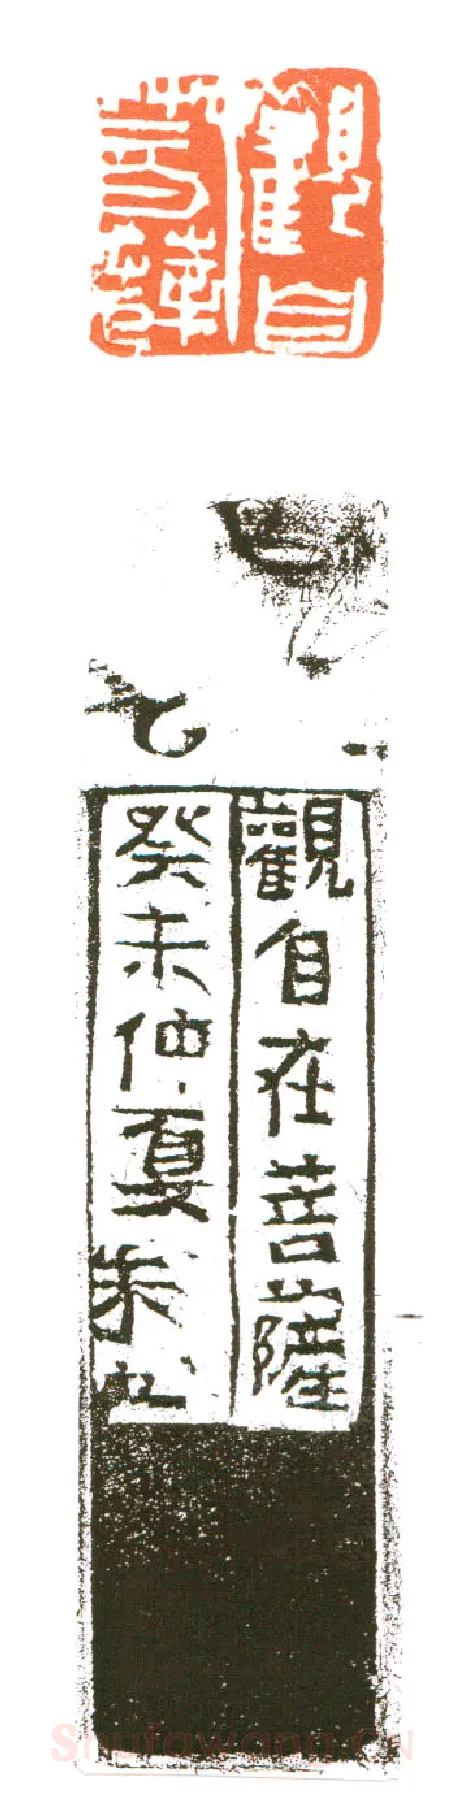 觀自
觀自在菩薩
癸未仲夏朱
Shufawang.CN